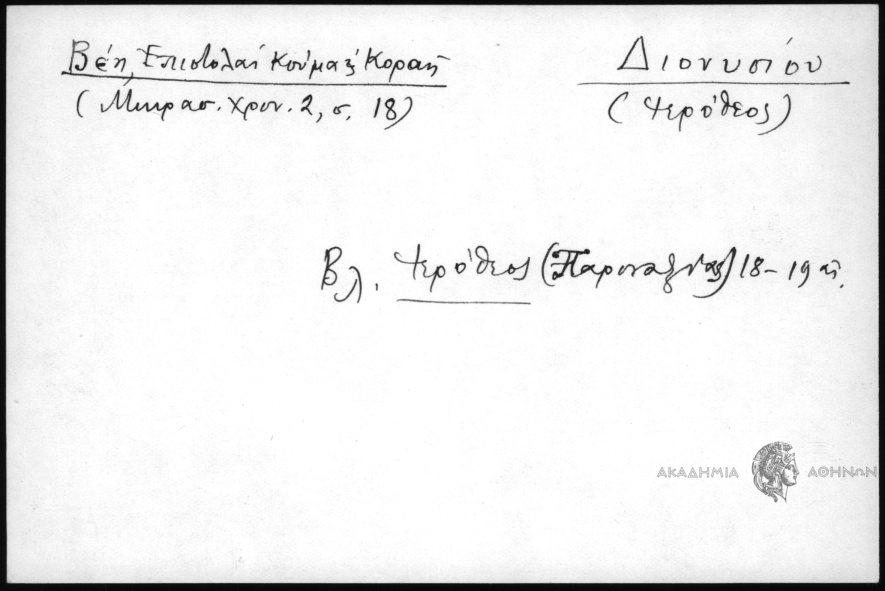 Βέη, Ἐπιστολαί Κούμα κ Κοραῆ
(Μικρασ. χρον. 2, σ. 18)
Διονυσίου
(Ἱερόθεος)
Βλ. Ἱερόθεος (Παροναξίας) 18-19 αἰ.
ΑΚΑΔΗΜΙΑ ΑΘΗΝΩΝ